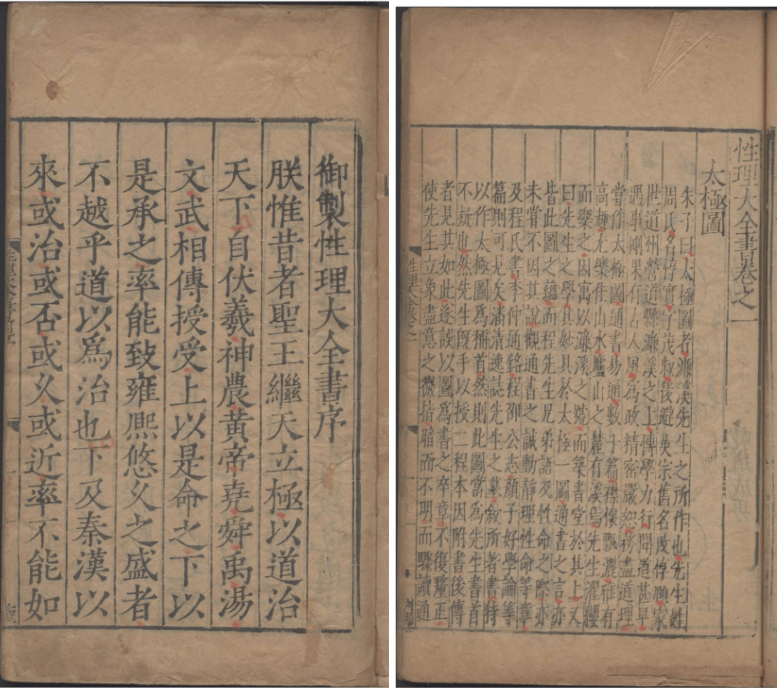 御製性理大全書序
朕惟昔者聖王繼天立極以道治
天下自伏羲神農黃帝堯舜禹湯
文武相傳授受上以是命之下以
是承之率能致雍熈悠久之盛者
不越乎道以爲治也下及秦漢以
來或治或否或久或近率不能如
性理大全書卷之一
太極圖
朱子曰太極圖者濂溪先生之所作也先生姓
周氏名惇實字茂叔後避英宗舊名改惇頤家
世道州營道縣濂溪之上博學力行聞道甚早
遇事剛果有古人風爲政精密嚴恕務盡道理
嘗作太極圖通書易通數十篇襟懷飄灑雅有
高趣尤樂佳山水廬山之麓有溪焉先生濯纓
而樂之因寓以濂溪之號而築書堂於其上又
曰先生之學其妙具於太極一圖通書之言亦
皆此圖之蘊而程先生兄弟語及性命之際亦
未嘗不因其說觀通書之誠動靜理性命等章
及程氏書李仲通銘程邵公志顏子好學論等
篇則可見矣潘清逸誌先生之墓叙所著書特
以作太極圖爲稱首然則此圖當爲先生書首
不疑也然先生既手以授二程本因附書後傳
者見其如此遂誤以圖爲書之卒章不復釐正
使先生立象盡意之微指暗而不明而驟讀通